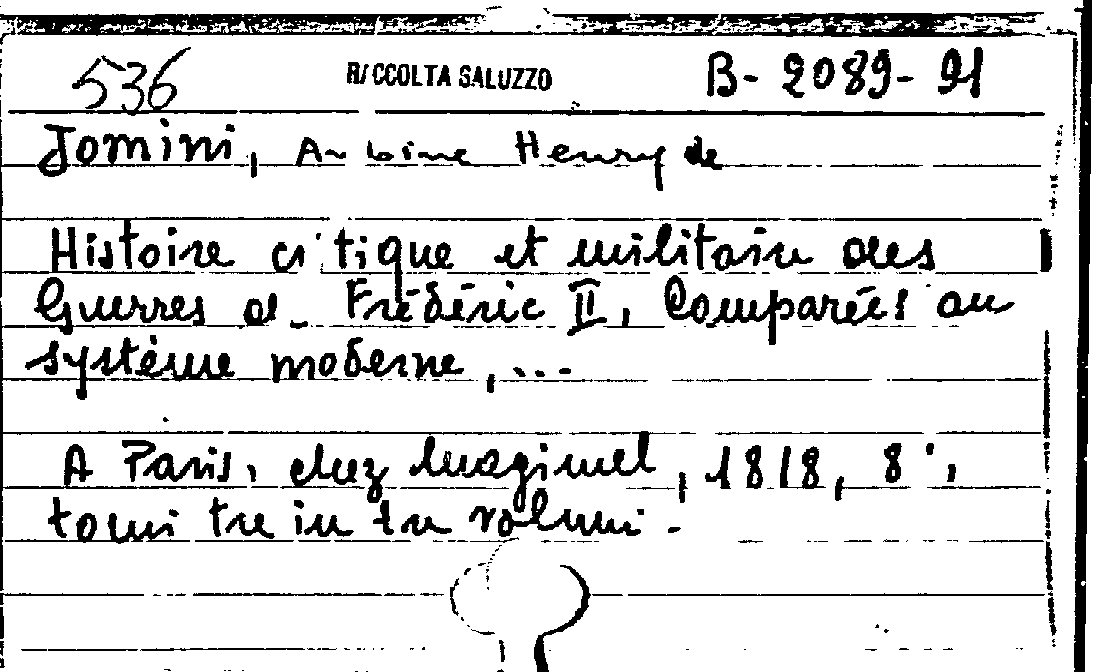 536 RACCOLTA SALUZZO B-2089-91
Jomini, Antoine Henry de
Histoire critique et militaire des
Guerres de Frédéric II, Comparées au
système moderne, ...
A Paris, chez Magimel, 1818, 8°,
tomi tre in tre volumi.